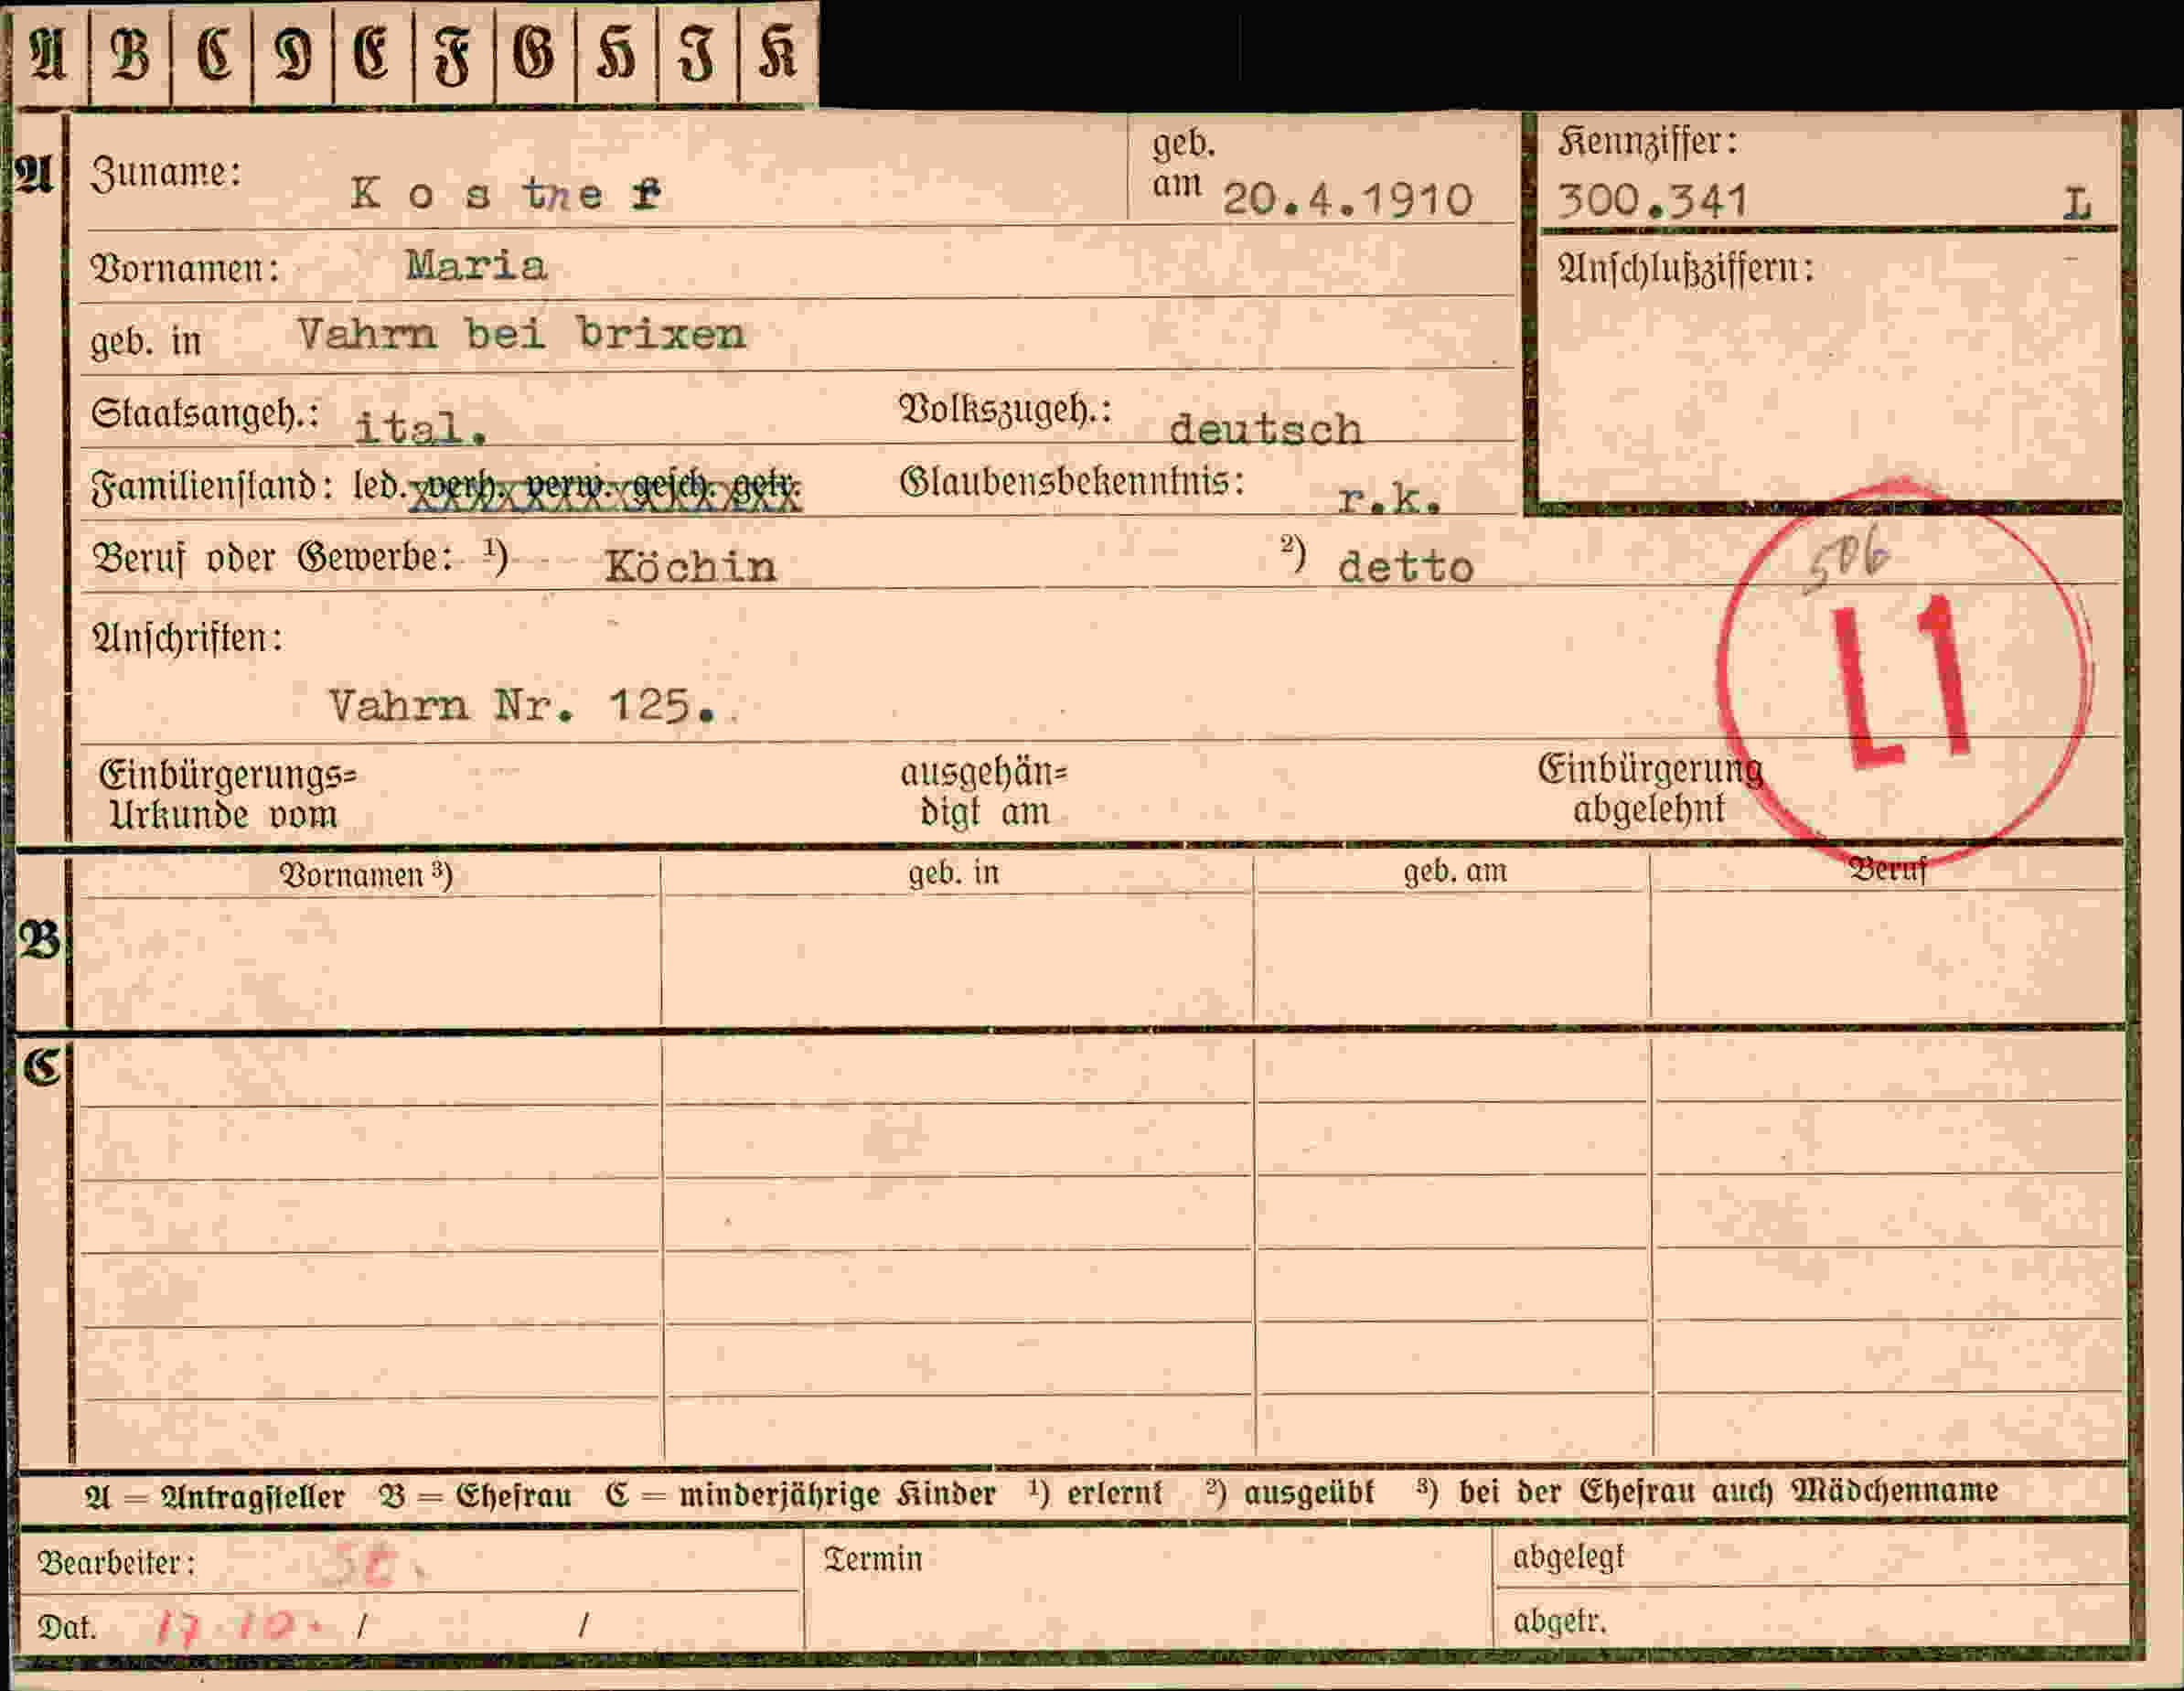 A B C D E F G H I K
A Zuname: Kostner geb. am 20.4.1910 Kennziffer: 300.341 L
Vornamen: Maria Anschlußziffern: -
geb. in Vahrn bei brixen
Staatsangeh.: ital. Volkszugeh.: deutsch
Familienstand: led. verh. verw. gesch. getr. Glaubensbekenntnis: r.k.
Beruf oder Gewerbe: ¹) Köchin ²) detto
506
Anschriften:
L1
Vahrn Nr. 125.
Einbürgerungs= ausgehän= Einbürgerung
Urkunde vom digt am abgelehnt
Vornamen ³) geb. in geb. am Beruf
B
C
A = Antragsteller B = Ehefrau C = minderjährige Kinder ¹) erlernt ²) ausgeübt ³) bei der Ehefrau auch Mädchenname
Bearbeiter: Termin abgelegt
Dat. 17.10. / / abgetr.